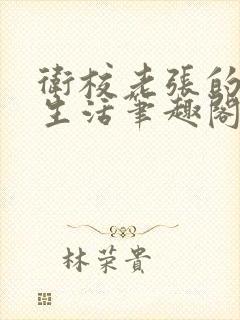 衛校老張的
生活筆趣閣
林荣貴